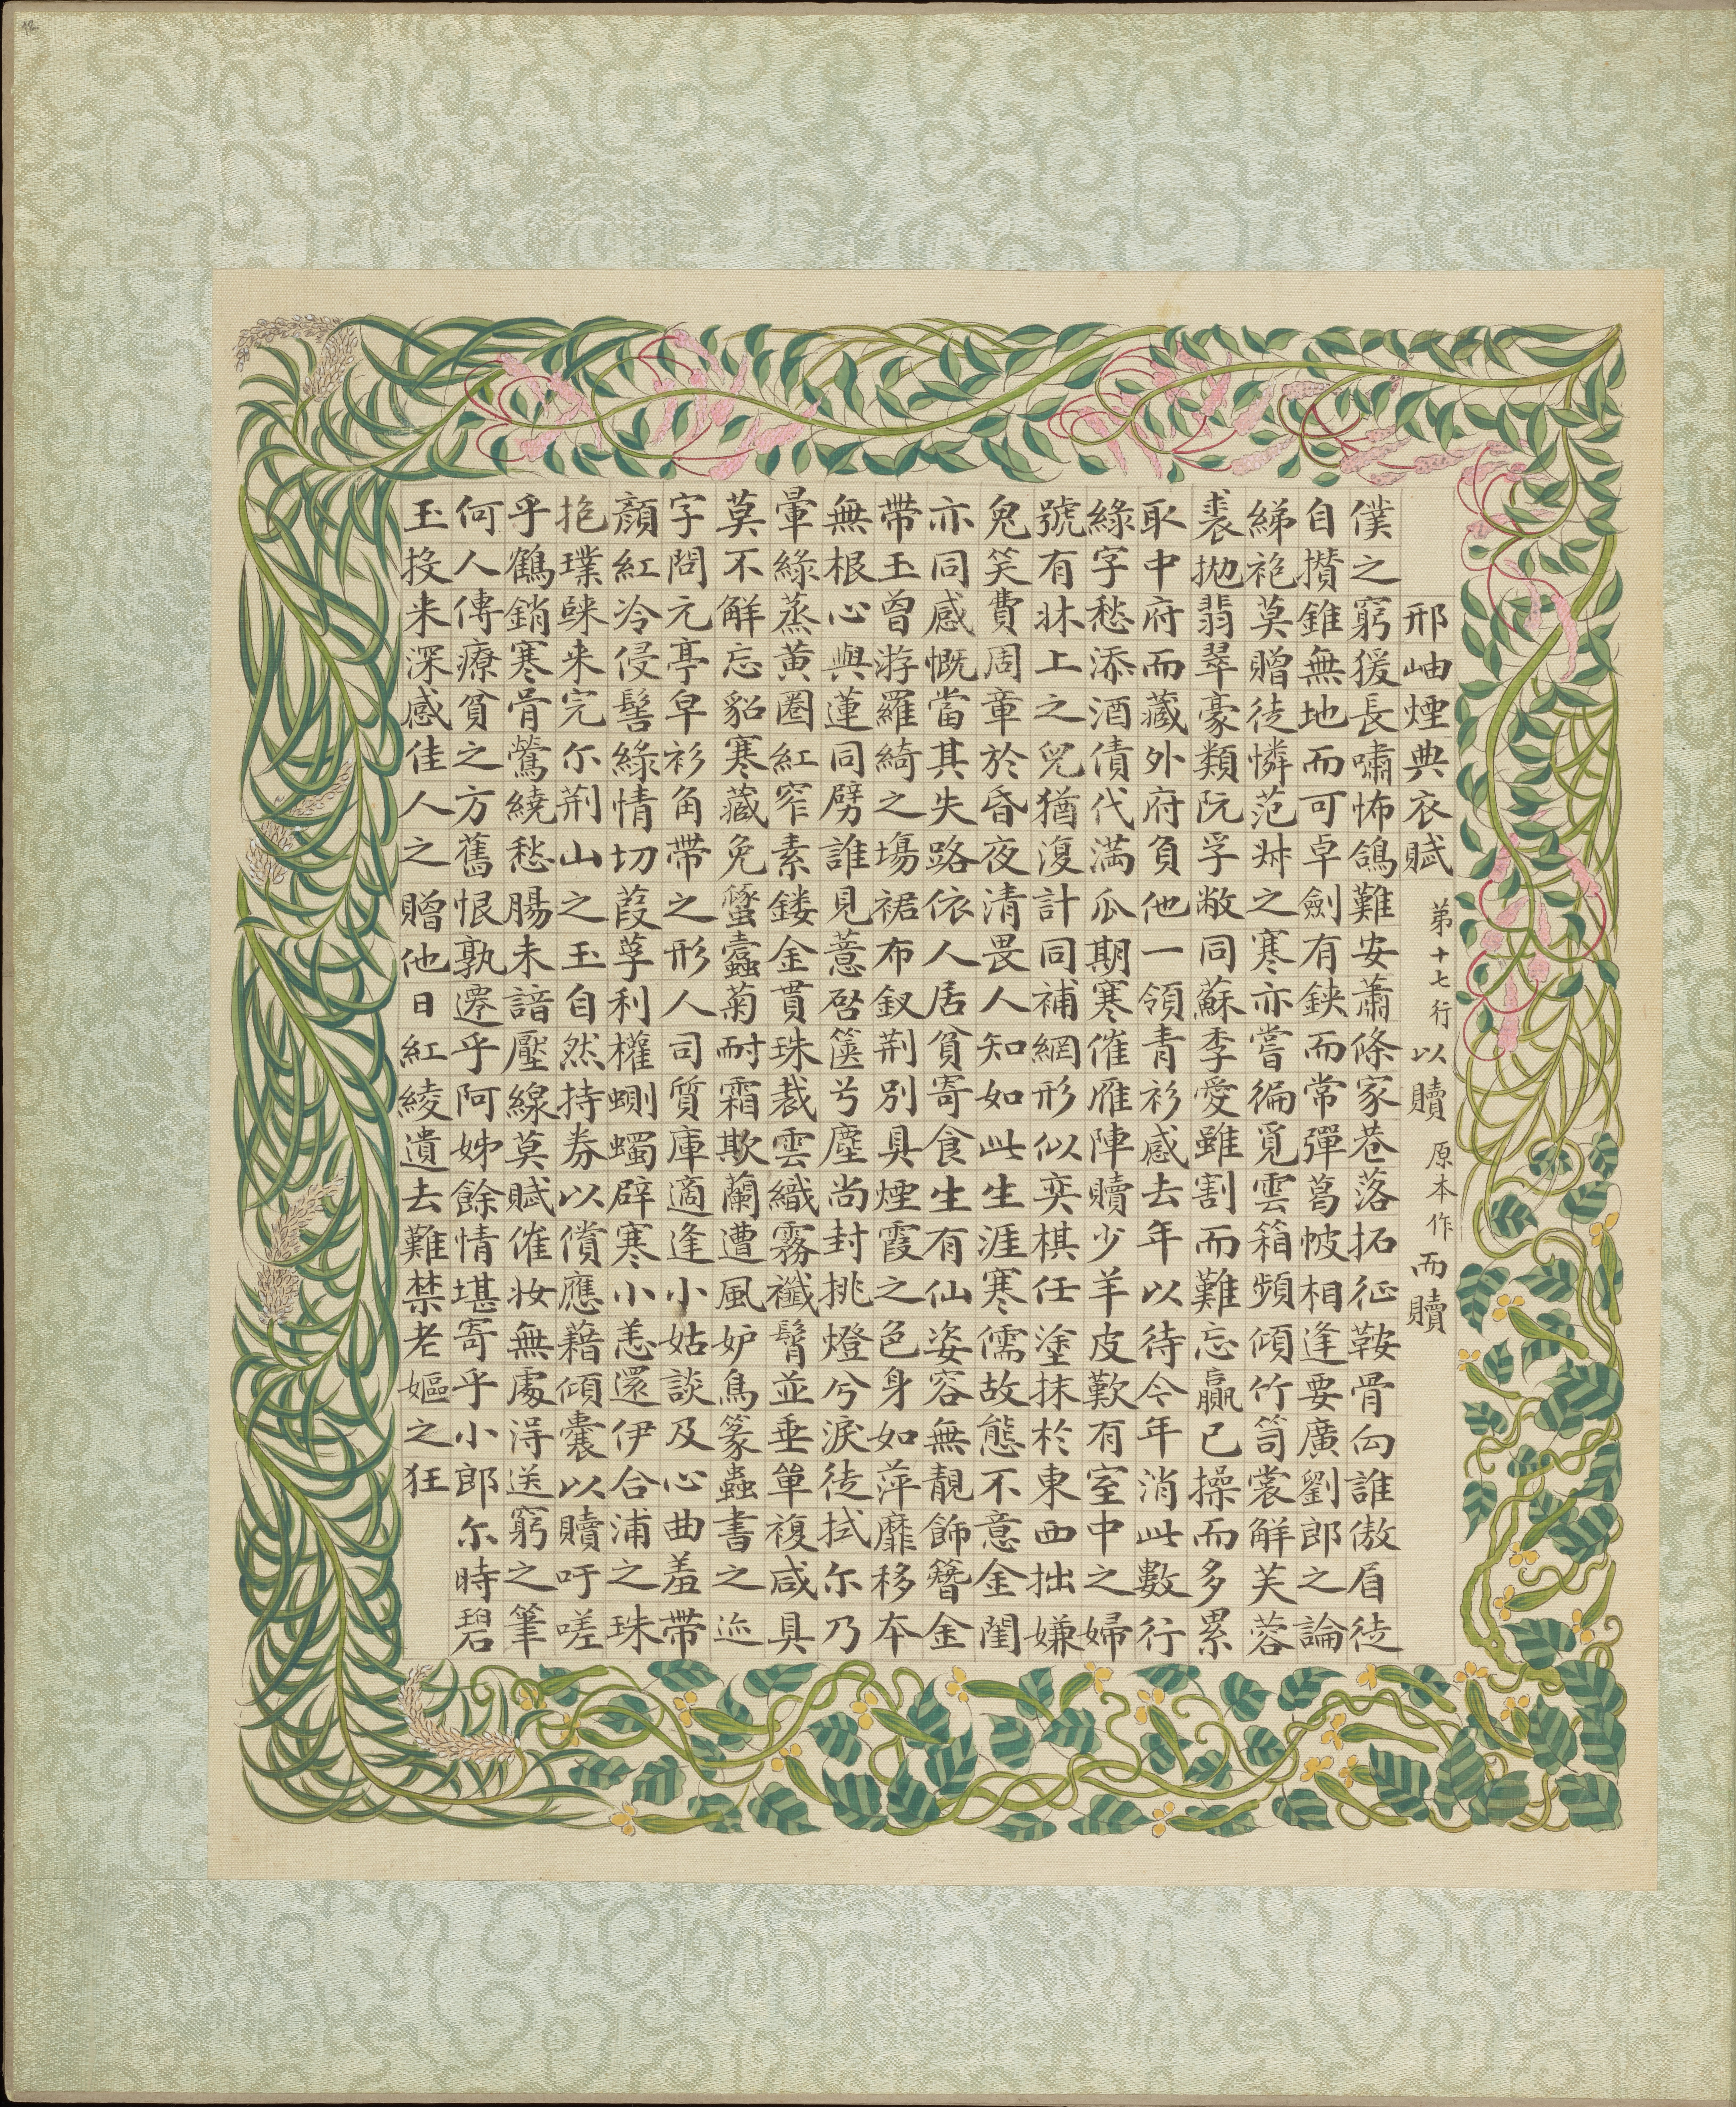 邢岫煙典衣賦 第十七行以贖原本作而贖
僕之窮猨長嘯怖鴿難安蕭條家巷落拓征鞍骨向誰傲眉徒
自攢錐無地而可卓劍有鋏而常彈葛帔相逢要廣劉郎之論
綈袍莫贈徒憐范叔之寒亦嘗徧覓雲箱頻傾竹笥裳解芙蓉
裘拋翡翠豪類阮孚敝同蘇季愛雖割而難忘贏已操而多累
取中府而藏外府負他一領青衫感去年以待今年消此數行
綠字愁添酒債代滿瓜期寒催雁陣贖少羊皮歎有室中之婦
號有牀上之兒猶復計同補網形似奕棋任塗抹於東西拙嫌
鬼笑費周章於昏夜清畏人知如此生涯寒儒故態不意金閨
亦同感慨當其失路依人居貧寄食生有仙姿容無靚飾簪金
帶玉曾游羅綺之場裙布釵荆別具煙霞之色身如萍靡移本
無根心與蓮同劈誰見薏啟篋兮塵尚封挑燈兮淚徒拭尓乃
暈綠蒸黄圈紅窄素鏤金貫珠裁雲織霧襳髾並垂單複咸具
莫不解忘貂寒藏免蟫蠹菊耐霜欺蘭遭風妒鳥篆蟲書之迹
字問元亭皁衫角帶之形人司質庫適逢小姑談及心曲羞帶
顏紅冷侵髻綠情切葭莩利權蝍蠋辟寒小恙還伊合浦之珠
抱璞睞来完尓荆山之玉自然持券以償應藉傾囊以贖吁嗟
乎鶴銷寒骨鶯繞愁腸未諳壓線莫賦催妝無處浔送窮之筆
何人傳療貧之方舊恨孰遷乎阿姊餘情堪寄乎小郎尓時碧
玉投来深感佳人之贈他日紅綾遺去難禁老嫗之狂
42